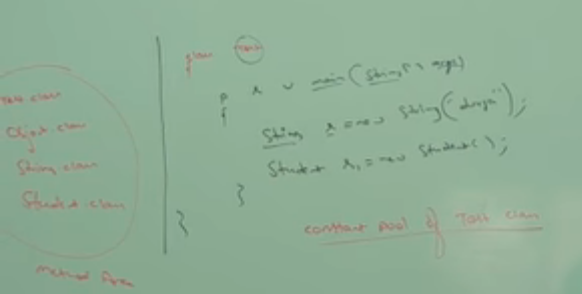 Test.class
Object.class
String.class
Student.class
Method Area
class Test
{
p s v main(String[] args)
{
String s = new String("durga");
Student s1 = new Student();
}
}
constant pool of Test class